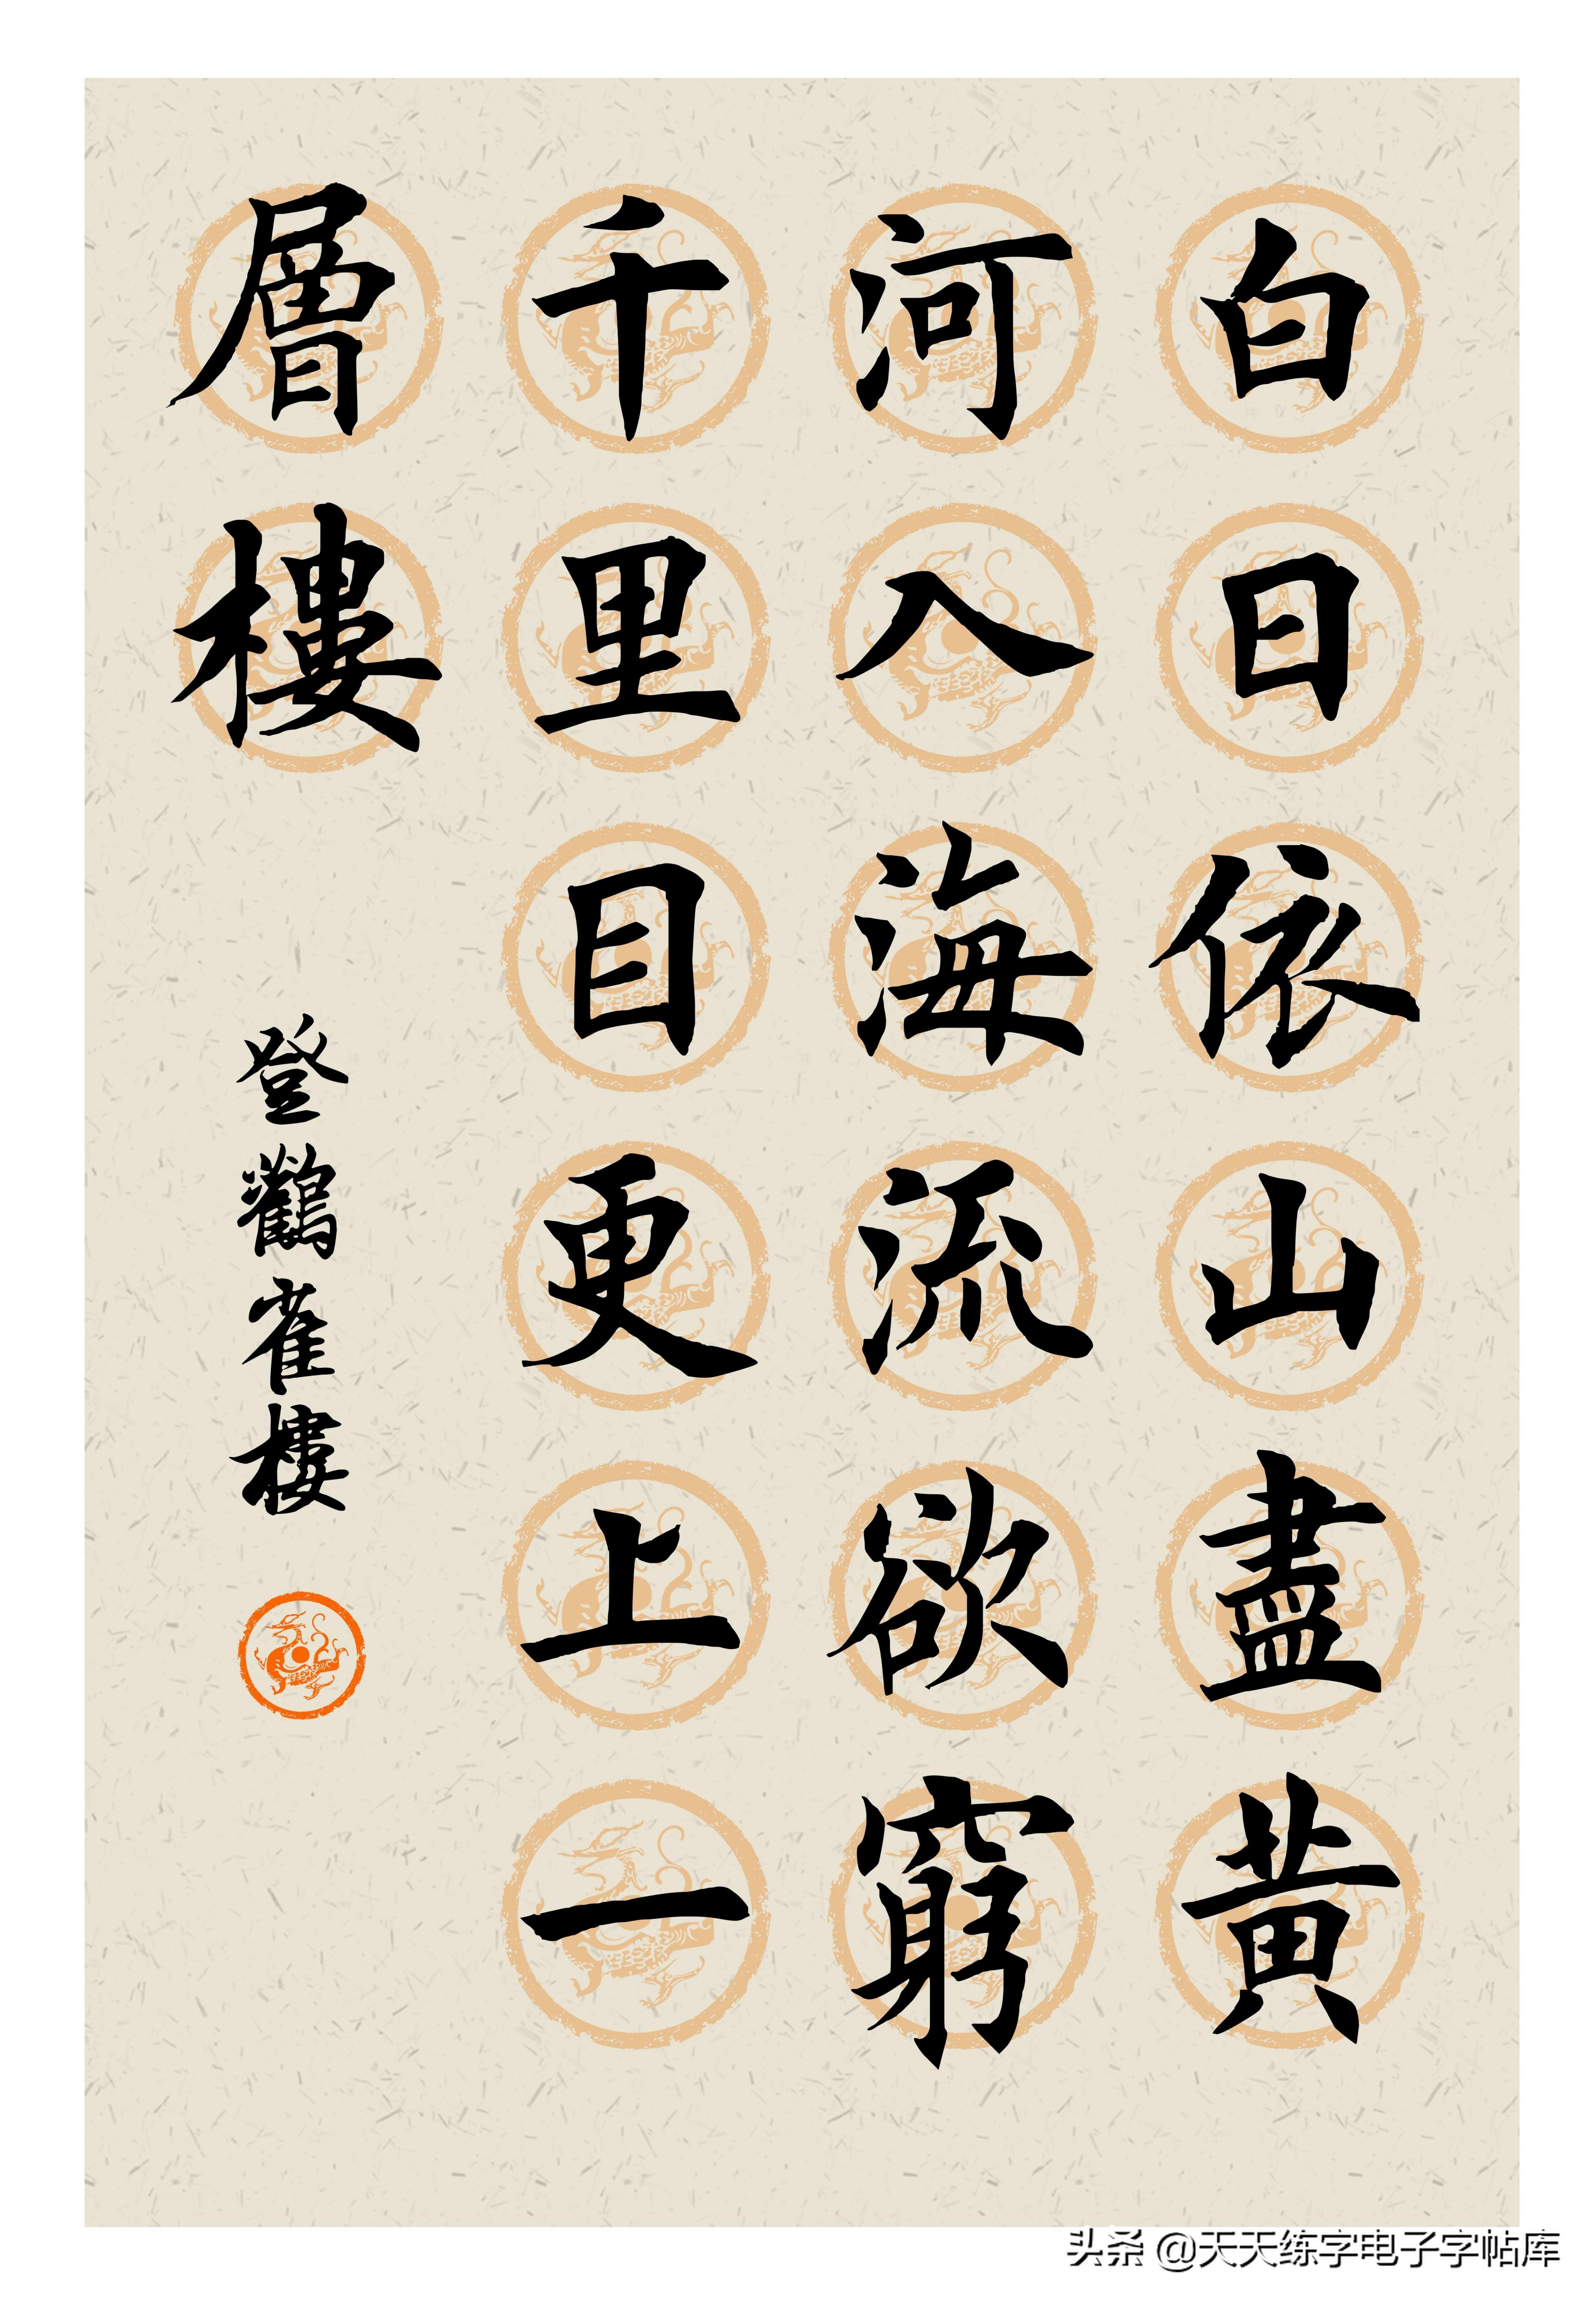 白日依山盡黃
河入海流欲窮
千里目更上一
層樓
登鸛雀樓
头条 @天天练字电子字帖库